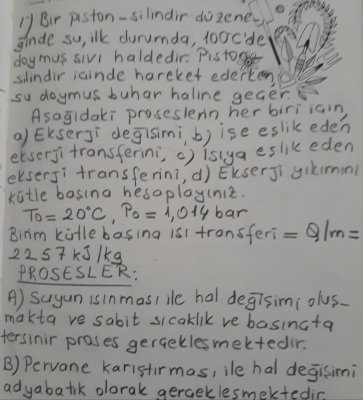 1) Bir piston-silindir düzene-
ğinde su, ilk durumda, 100°C'de
doymuş sıvı haldedir. Piston
silindir içinde hareket ederken,
su doymuş buhar haline geçer.
Aşağıdaki proseslerin her biri için,
a) Ekserji değişimi, b) işe eşlik eden
ekserji transferini, c) Isıya eşlik eden
ekserji transferini, d) Ekserji yıkımını
kütle başına hesaplayınız.
T0 = 20°C, P0 = 1,014 bar
Birim kütle başına ısı transferi = Q/m =
2257 kJ/kg
PROSESLER:
A) Suyun ısınması ile hal değişimi oluş-
makta ve sabit sıcaklık ve basınçta
tersinir proses gerçekleşmektedir.
B) Pervane karıştırması, ile hal değişimi
adyabatik olarak gerçekleşmektedir.